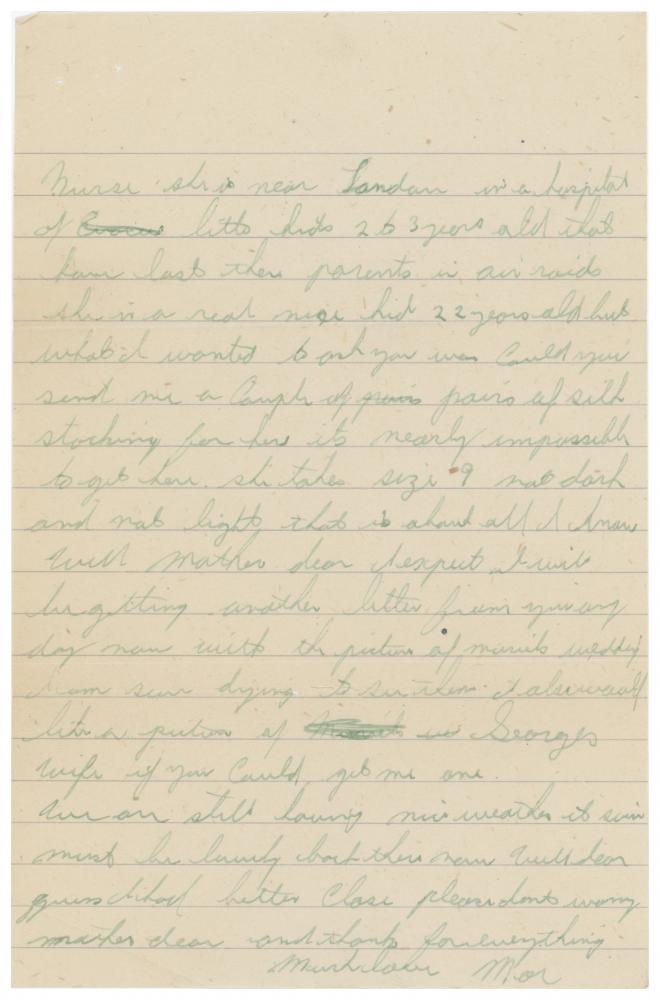 Nurse she is near London in a hospital
of little kids 2 to 3 years old that
have lost there parents in air raids
she is a real nice kid 22 years old but
what I wanted to ask you was Could you
send me a Couple of pairs pairs of silk
stocking for her its nearly impossible
to get here. she takes size 9 not dark
and not light that is about all I know
Well Mother dear I expect I will
be getting another letter from you any
day now with the picture of wedding
sure drying to see them I also would
like a picture of Georges
wife if you Could get me one.
We are still having nice weather it sure
must be lovely back there now Well dear
guess I had better Close please dont worry
mother dear and thanks for everything
Much love